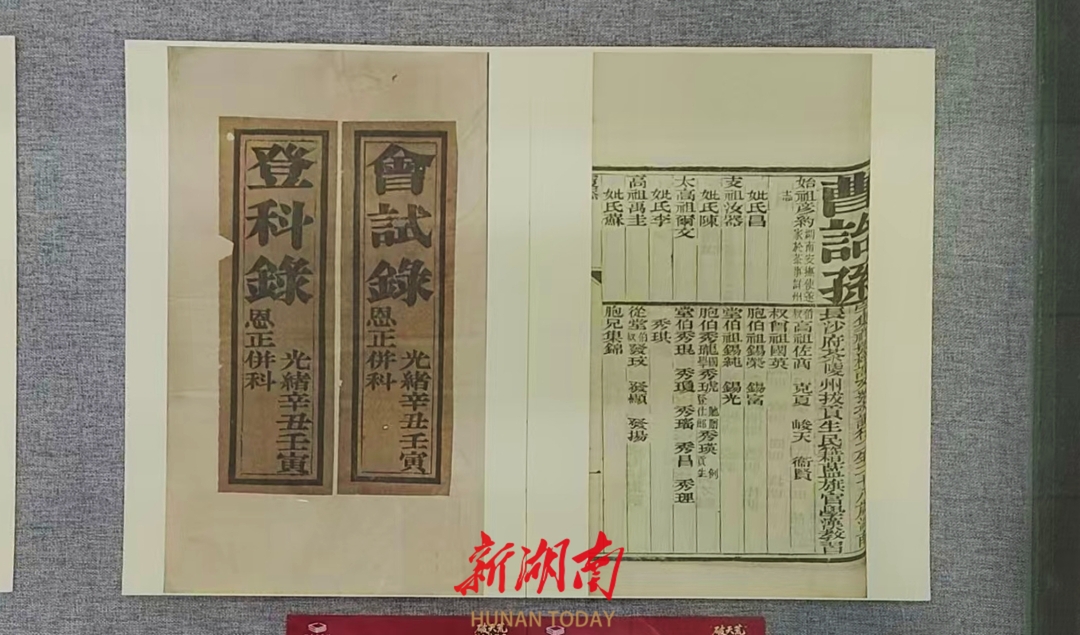 會試錄
光緒辛丑壬寅
恩正併科
登科錄
光緒辛丑壬寅
恩正併科
曹詒孫
長沙府茶陵州拔貢生民籍藍旗官學漢教習
始祖彥約
妣氏昌
支祖汝器
妣氏陳
太高祖爾文
妣氏李
高祖禹圭
妣氏蘇
高祖佐高 克夏 峻天 衞賢
叔曾祖國英
胞伯祖錫榮 錫富
堂伯祖錫純 錫光
胞伯秀龍 秀琥 秀瑛
堂伯秀琨 秀瓊 秀瑤 秀昌 秀理
秀琪
從堂伯叔發玟 發顯 發揚
胞兄集錦
新湖南
HUNAN TODAY
破天荒
破天荒